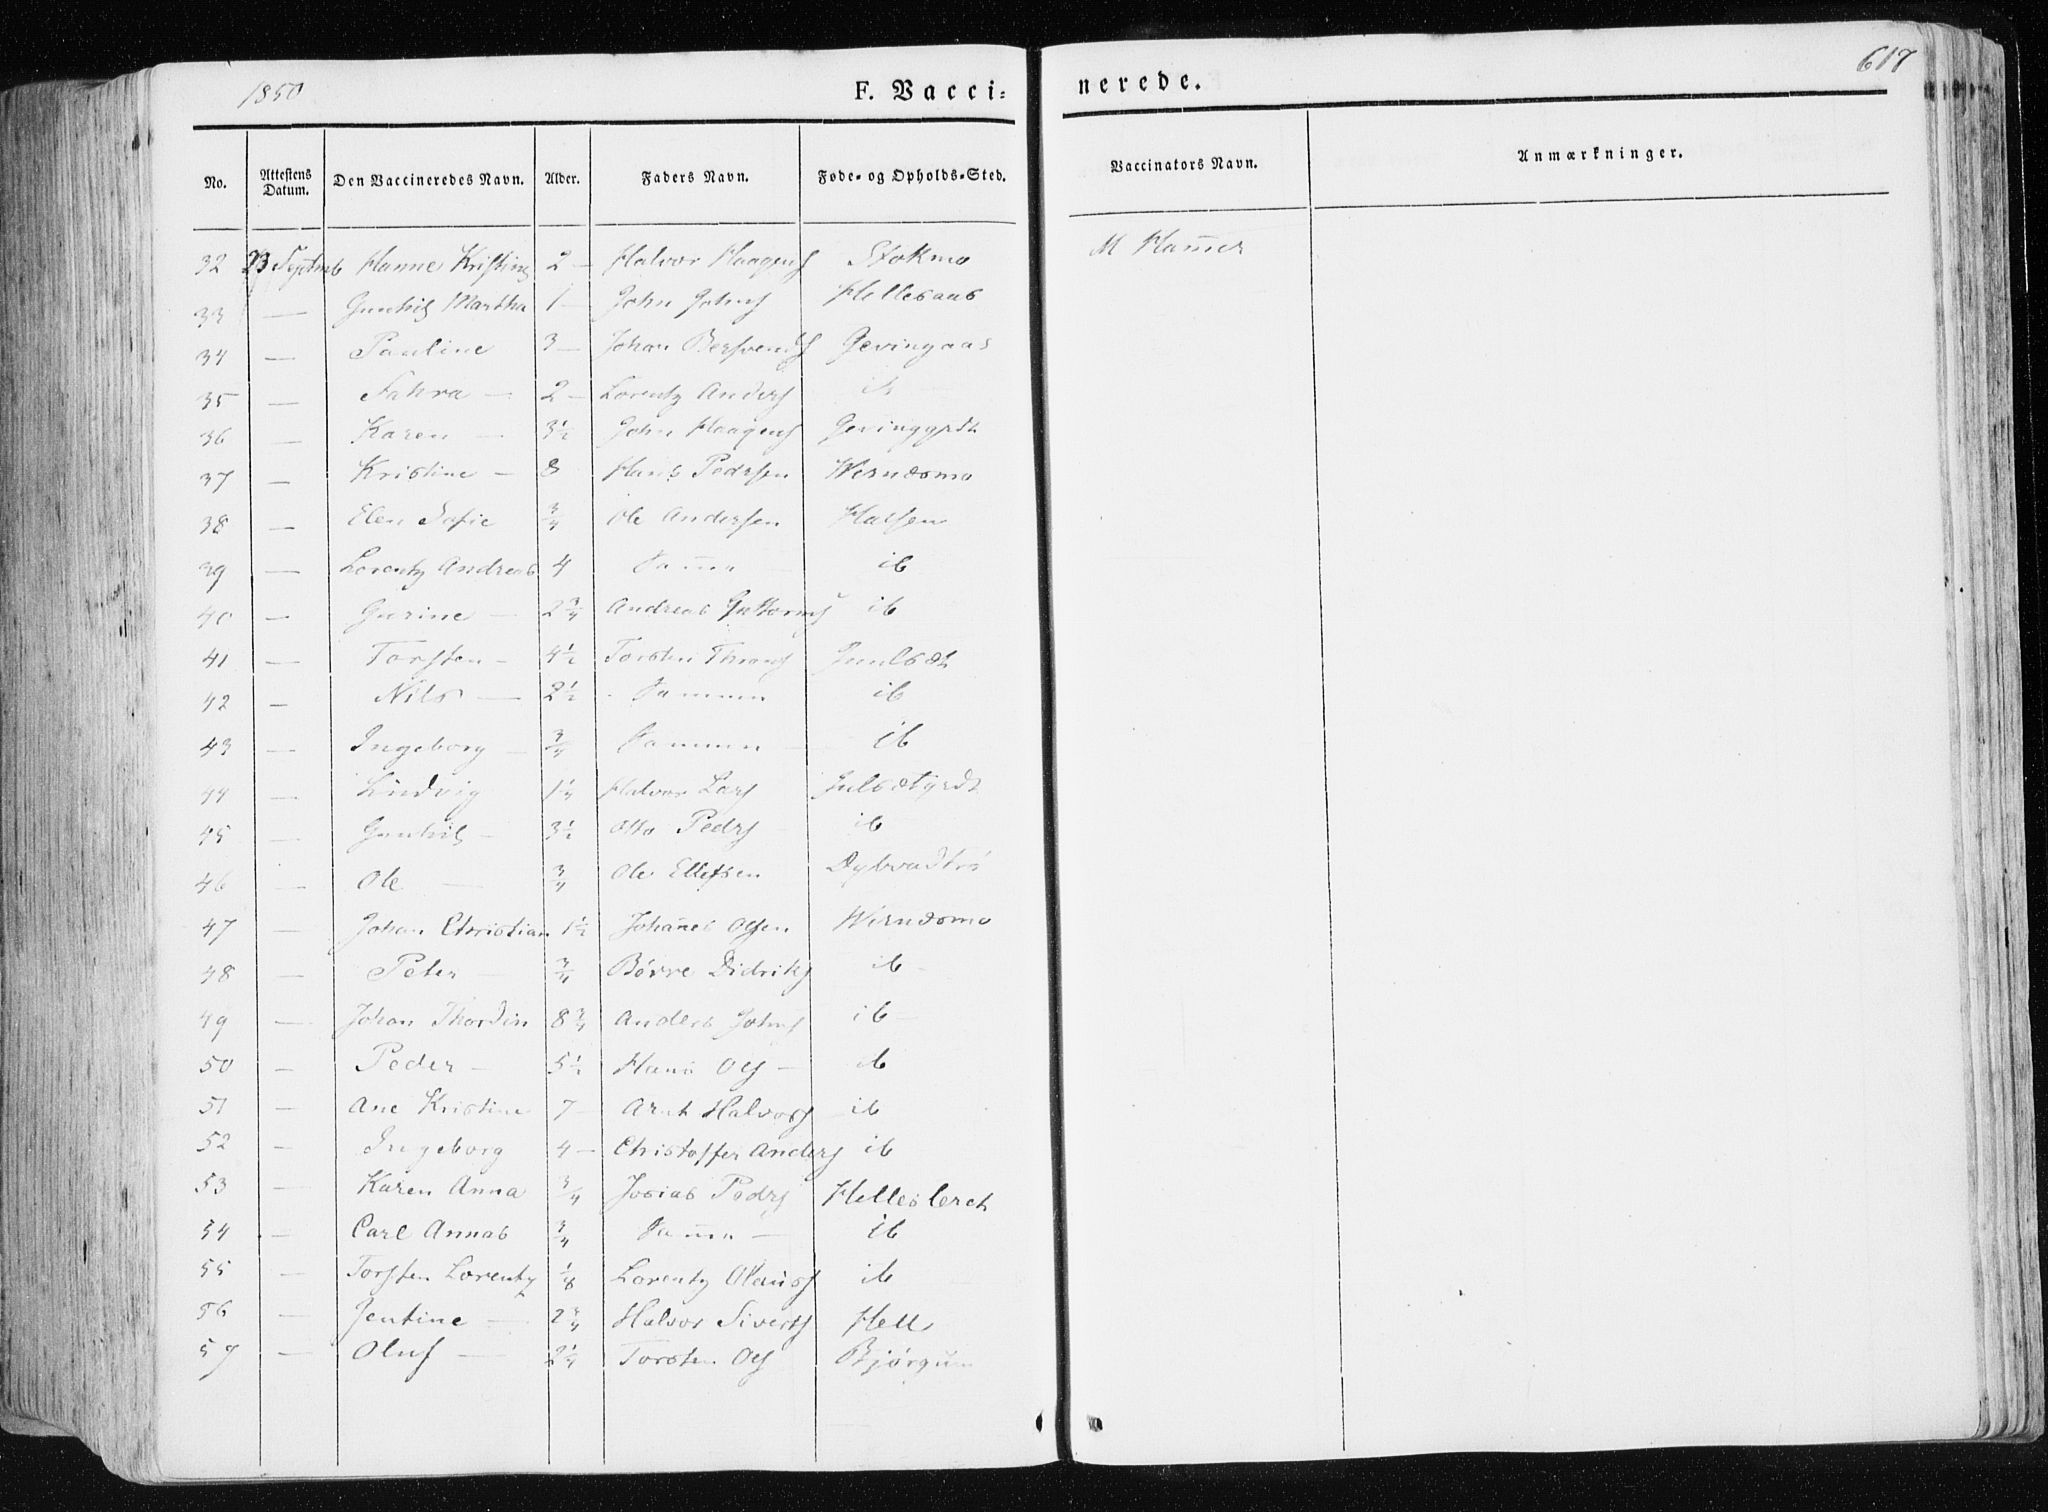 1850 F. Vacci= nerede. 617
No. Attestens Datum. Den Vaccineredes Navn. Alder. Faders Navn. Føde= og Opholds=Sted. Vaccinators Navn. Anmærkninger.
32 23 Septmb Hanne Kristine 2 — Halvor Haagens Stokmo M Hamer
33 — Gunhil Martha 1 — John Johns Hellesaas
34 — Pauline 3 — Johan Bersvends Gevingaas
35 — Sahra — 2 — Lorentz Anders ib
36 — Karen — 3½ John Haagens Gevinggrdt
37 — Kristine — 8 Hans Pedersen Wernesmo
38 — Elen Sofie ¾ Ole Andersen Halsen
39 — Lorentz Andreas 4 Samme — ib
40 — Gurine — 2¾ Andreas Guttorms ib
41 — Torsten — 4½ Torsten
42 — Nils — 2½ Sammen ib
43 — Ingeborg — ¾ Sammen — ib
44 — Ludvig 1¼ Halvor Lars
45 — Gunhil — 3½ Otto Peders — ib
46 — Ole — ¾ Ole Ellefsen
47 — Johan Christian 1½ Johanes Olsen Wernesmo
48 — Peter — ¾ Børre Didriks ib —
49 — Johan Thordin 8¾ Anders Johns ib —
50 — Peder — 5½ Hans Ols — ib
51 — Ane Kristine 7 — Arnt Halvors ib
52 — Ingeborg 4 — Christoffer Anders ib
53 — Karen Anna ¾ Josias Peders
54 — Carl Annas ¾ Samme — ib
55 — Torsten Lorentz ⅛ Lorentz Olaus ib
56 — Jentine — 2¾ Halvor Siverts Hell
57 — Oluf — 2¼ Torsten Ols Bjørgum